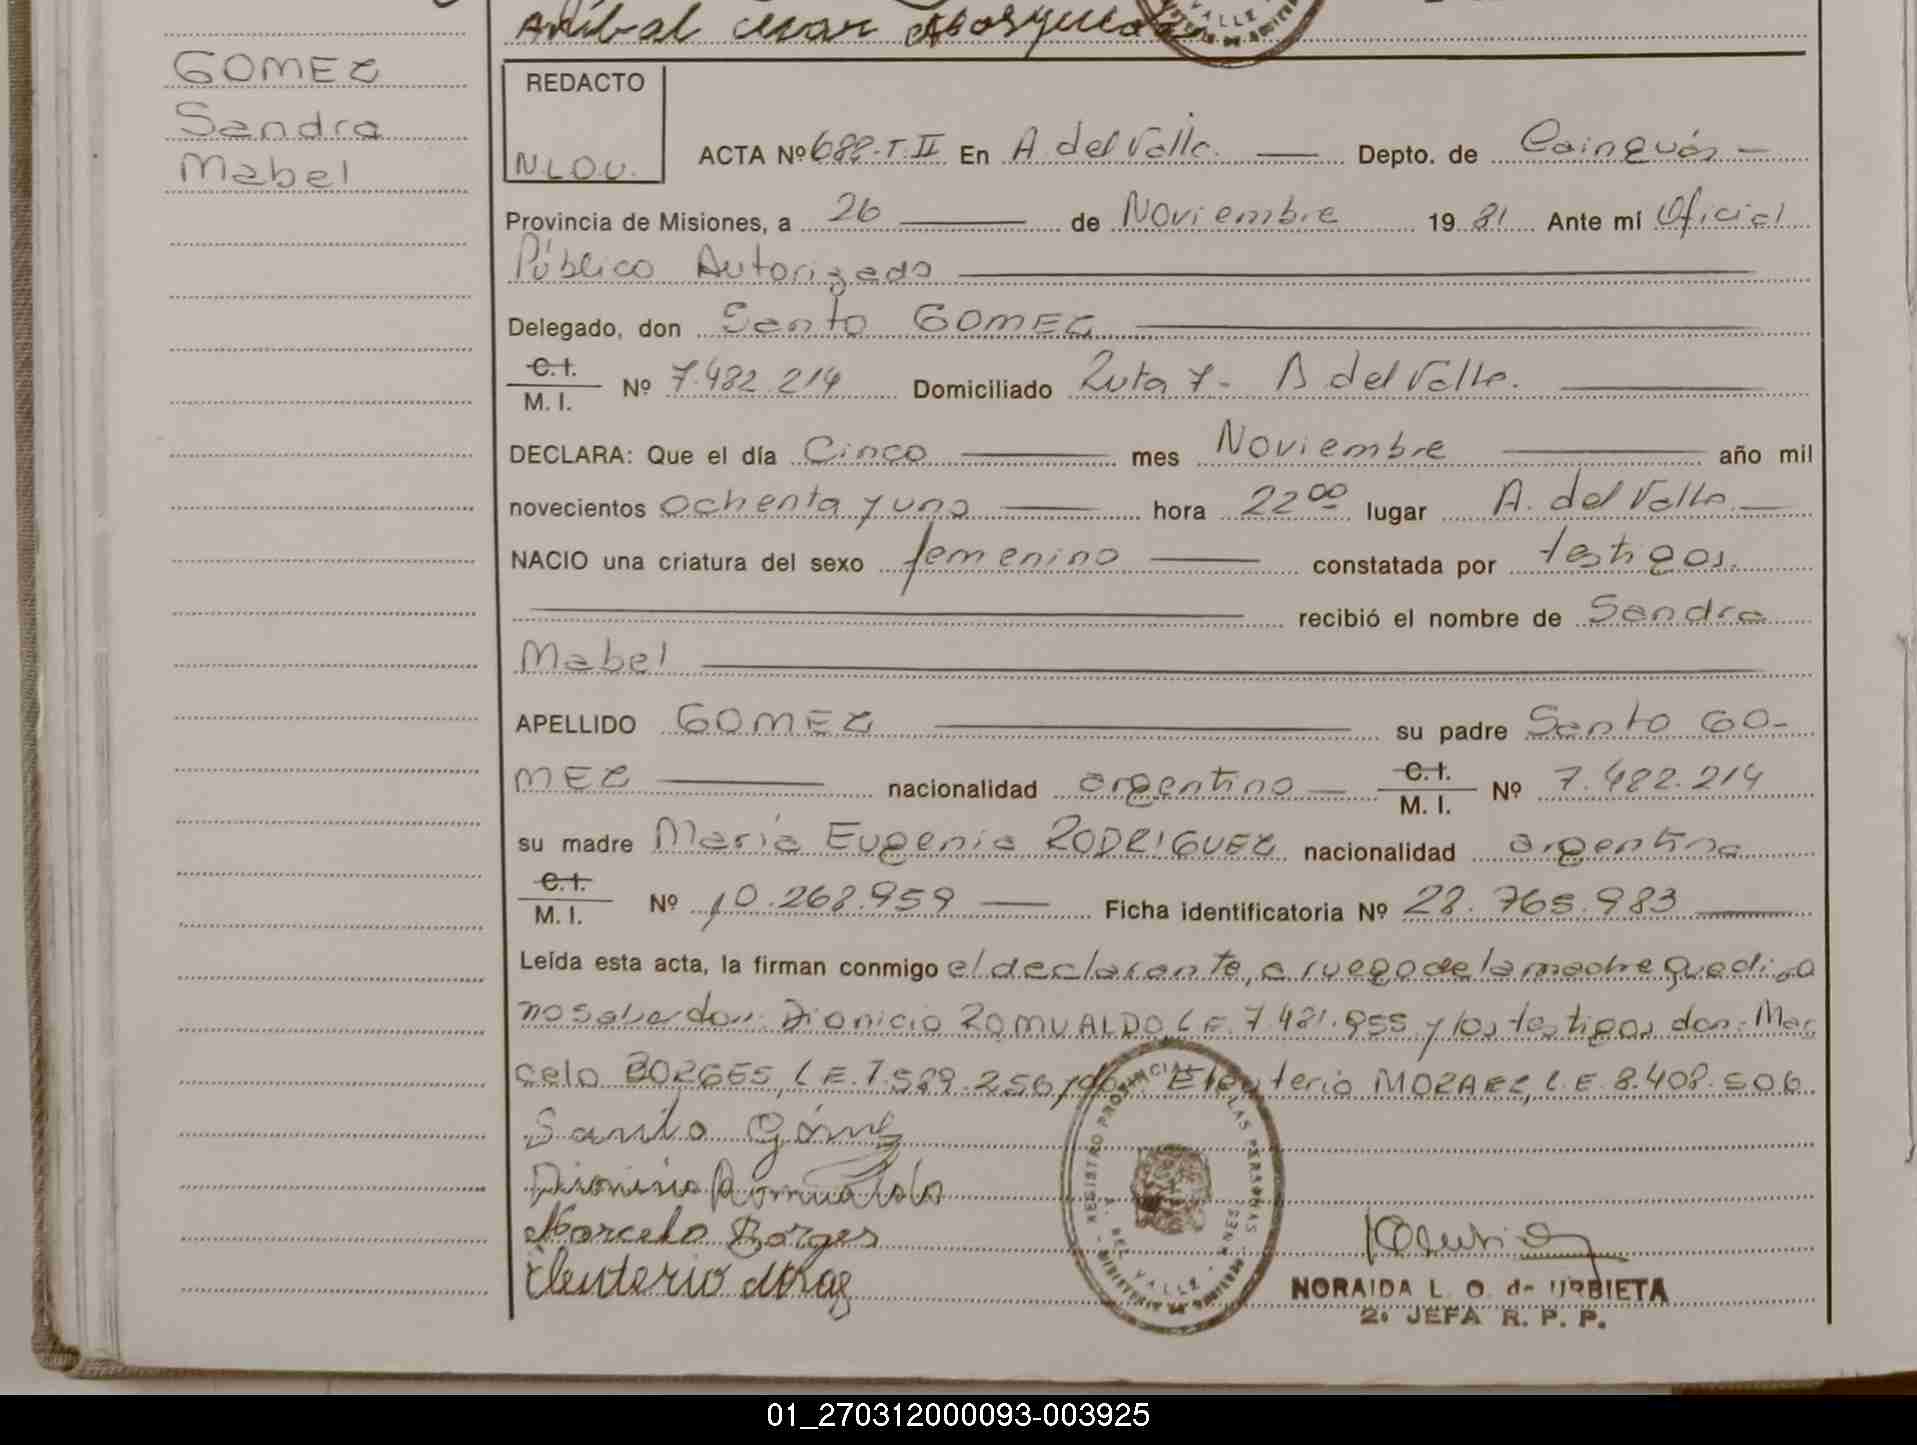 Aníbal Cesar Mosqueda
GOMEZ
Sandra
Mabel
REDACTO
N.L.O.U.
ACTA Nº 682-T.II En A del Valle. Depto. de Cainguás
Provincia de Misiones, a 26 de Noviembre 19 81 Ante mí Oficial
Público Autorizado
Delegado, don Santo GOMEZ
C.I. / M. I. Nº 7.482.214 Domiciliado Ruta 7- A del Valle.
DECLARA: Que el día Cinco mes Noviembre año mil
novecientos ochenta y uno hora 22 00 lugar A. del Valle
NACIO una criatura del sexo femenino constatada por testigos.
recibió el nombre de Sandra
Mabel
APELLIDO GOMEZ su padre Santo GO-
MEZ nacionalidad argentino C.I. / M. I. Nº 7.482.214
su madre María Eugenia RODRIGUEZ nacionalidad argentina
C.I. / M. I. Nº 10.268.959 Ficha identificatoria Nº 28.765.983
Leída esta acta, la firman conmigo el declarante, a ruego de la madre que dijo
no saber don: Dionicio ROMUALDO, L.E. 7.481.955 y los testigos don: Mar
celo BORGES, L.E. 7.589.256 y don: Eleuterio MORAEZ, L.E. 8.408.506.
Santo Gómez
Dionicio Romualdo
Marcelo Borges
Eleuterio Moraez
REGISTRO PROVINCIAL DE LAS PERSONAS
A. DEL VALLE - MISIONES
NORAIDA L. O. de URBIETA
2º JEFA R. P. P.
01_270312000093-003925